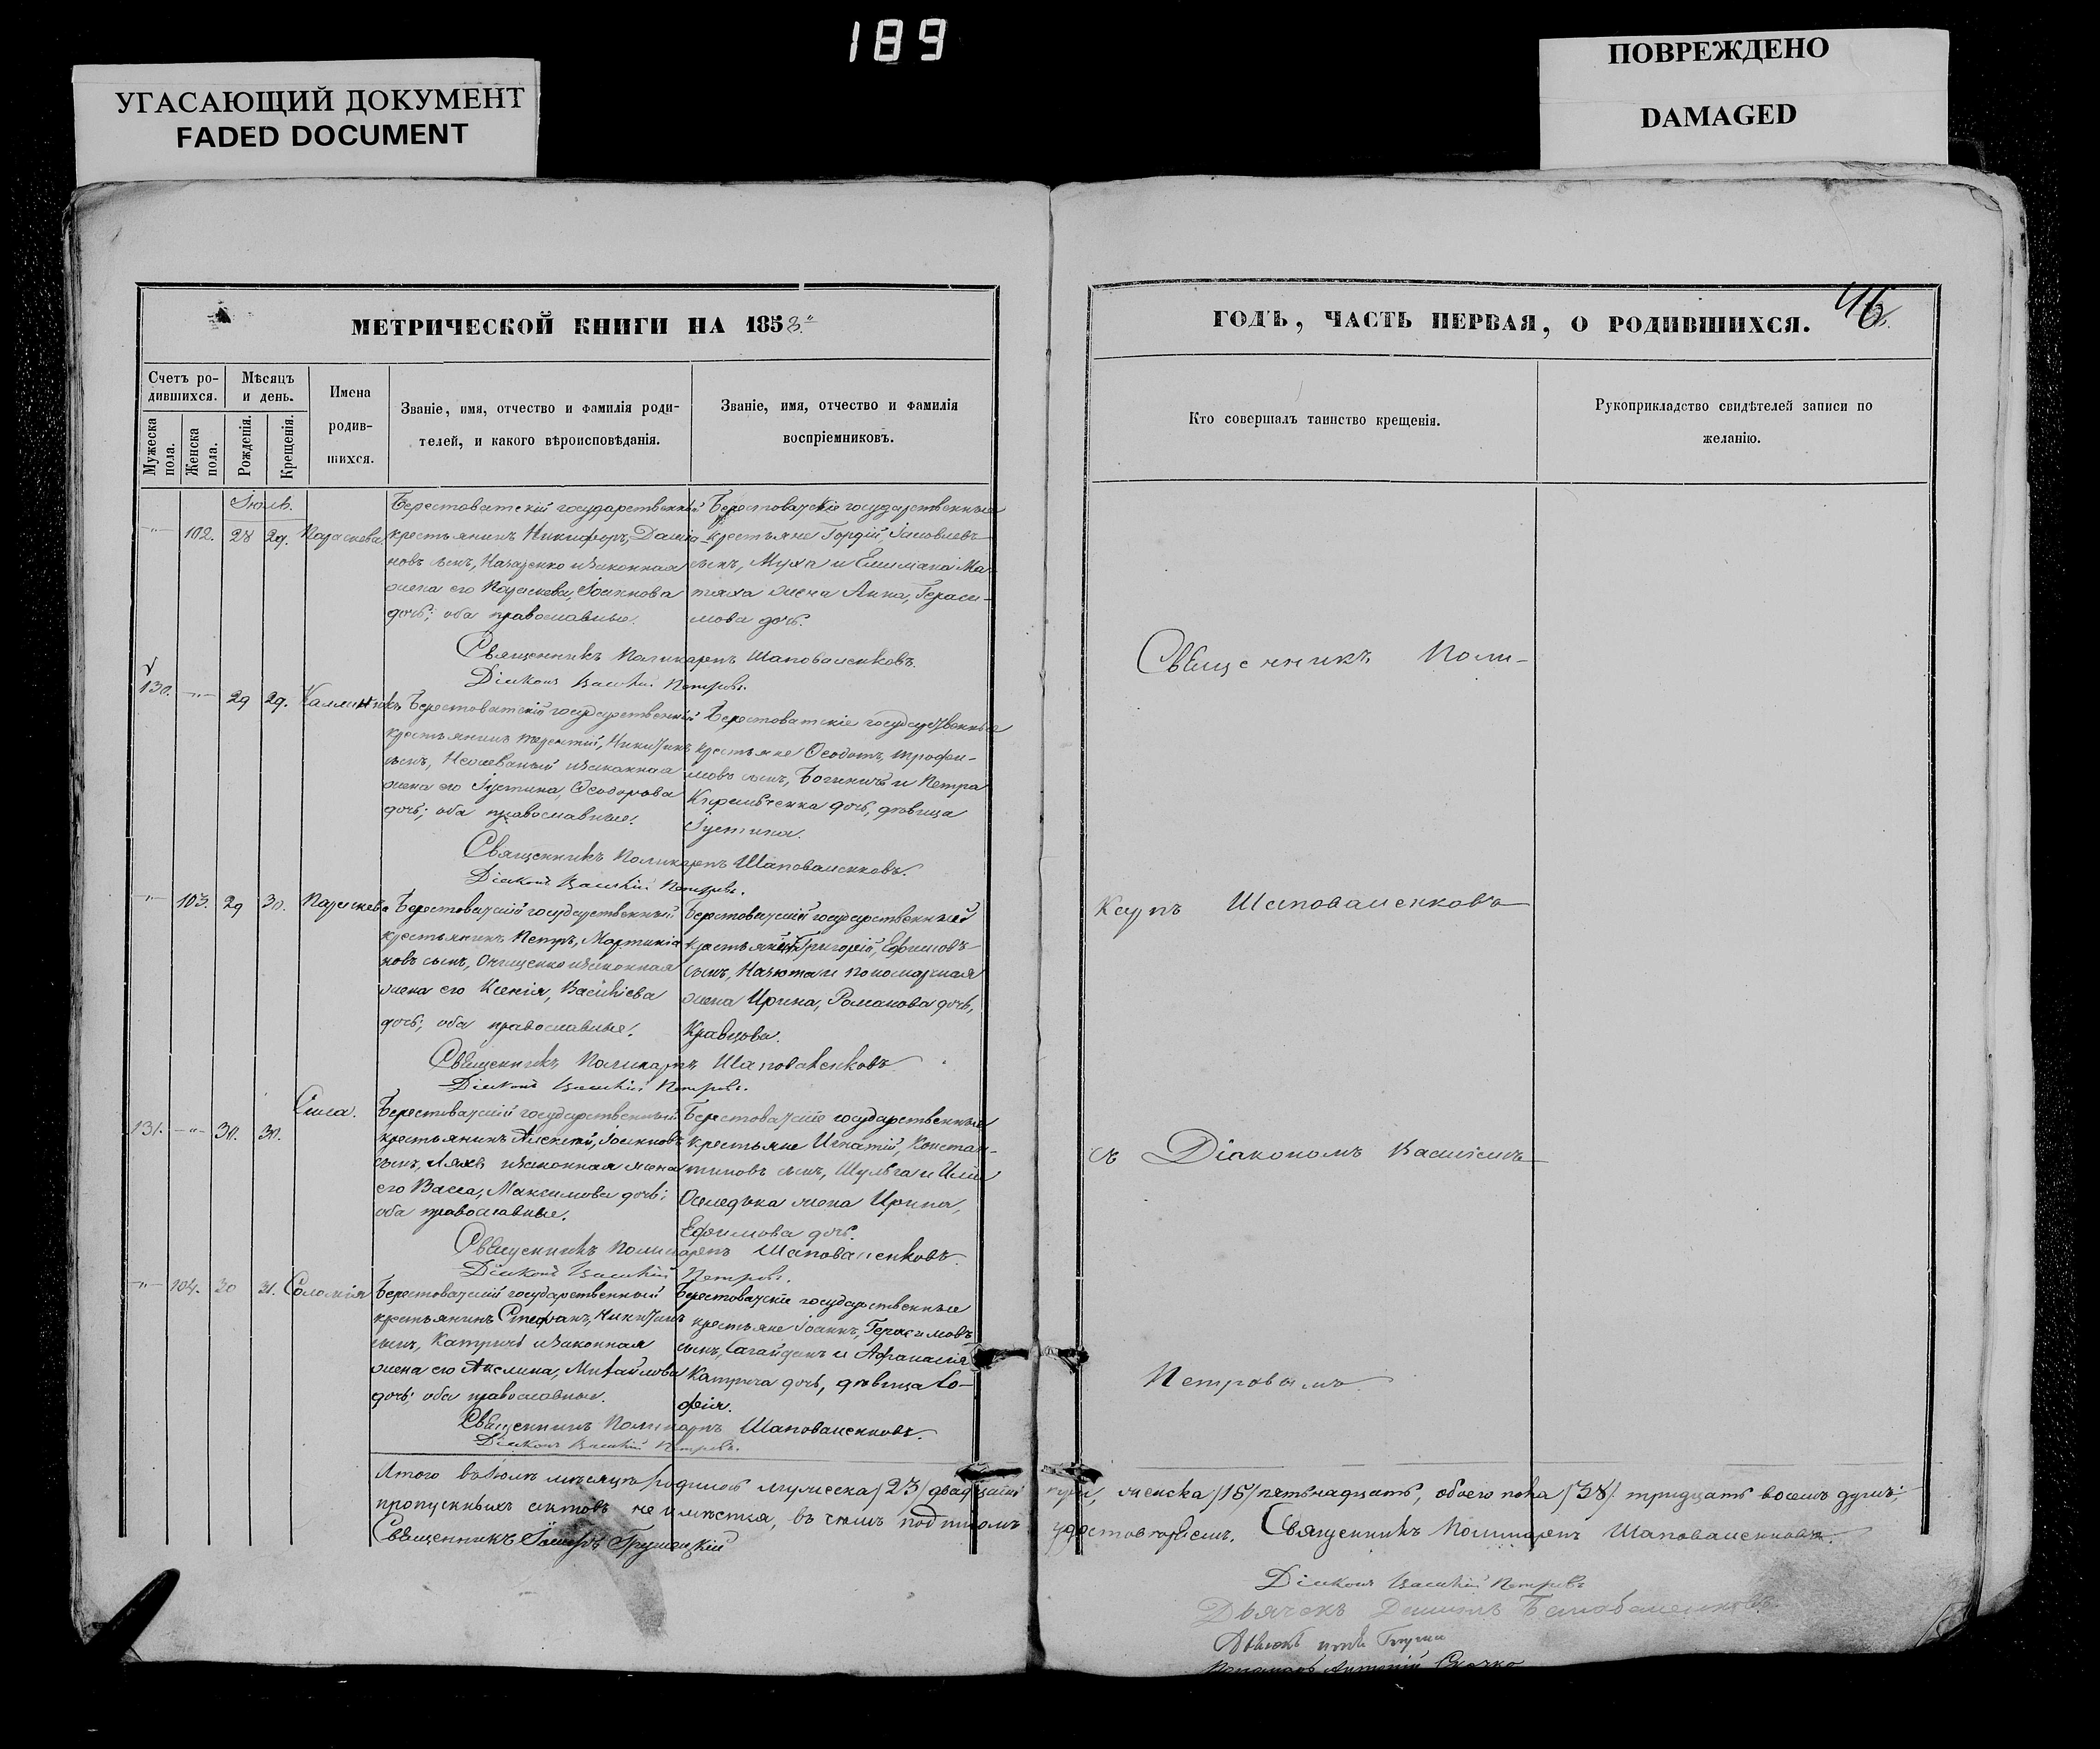 189
УГАСАЮЩИЙ ДОКУМЕНТ
FADED DOCUMENT
ПОВРЕЖДЕНО
DAMAGED
МЕТРИЧЕСКОЙ КНИГИ НА 1858
Счетъ ро-
дившихся.
Мужеска
пола.
Женска
пола.
Мѣсяцъ
и день.
Рожденія.
Крещенія.
Имена
родив-
шихся.
Званіе, имя, отчество и фамилія роди-
телей, и какого вѣроисповѣданія.
Званіе, имя, отчество и фамилія
воспріемниковъ.
Іюль.
102. 28 29. Параскева
Берестоватскій государственный
крестьянинъ Никифоръ, Даміа-
новъ сынъ, Назаренко и законная
жена его Параскева, Іоаннова
дочь; оба православные.
Берестоватскіе государственные
крестьяне Гордій, Іаковлевъ
сынъ, Муха и Емиліана Ма-
тяха жена Анна, Гераси-
мова дочь.
Священникъ Поликарпъ Шаповаленковъ.
Діаконъ Василій Петровъ.
130. 29 29. Каллиникъ
Берестоватскій государственный
крестьянинъ Терентій, Никитинъ
сынъ, и законная
жена его Іустина, Ѳеодорова
дочь; оба православные.
Берестоватскіе государственные
крестьяне Ѳеодотъ, Трофи-
мовъ сынъ, и Петра
дочь, дѣвица
Іустина.
Священникъ Поликарпъ Шаповаленковъ.
Діаконъ Василій Петровъ.
103. 29 30. Параскева
Берестоватскій государственный
крестьянинъ Петръ, Мартиніа
новъ сынъ, Онищенко и законная
жена его Ксенія, Васильева
дочь; оба православные.
Берестоватскій государственный
Григорій, Ефимовъ
сынъ, и пономарская
жена Ирина, Романова дочь,
Кравцова.
Священникъ Поликарпъ Шаповаленковъ
Діаконъ Василій Петровъ.
131. 30. 30. Сила.
Берестоватскій государственный
крестьянинъ Алексій, Іоанновъ
сынъ, Ляхъ и законная жена
его Васса, Максимова дочь;
оба православные.
Берестоватскіе государственные
крестьяне Игнатій, Констан-
тиновъ сынъ, Шульга и Иліи
Оселедька жена Ирина,
Ефимова дочь.
Священникъ Поликарпъ Шаповаленковъ.
Діаконъ Василій Петровъ.
104. 30 31. Соломія
Берестоватскій государственный
крестьянинъ Стефанъ, Никитинъ
сынъ, Катричъ и законная
жена его Акилина, Михайлова
дочь; оба православные.
Берестоватскіе государственные
крестьяне Іоаннъ, Герасимовъ
сынъ, Сагайданъ и Афанасія
Катрича дочь, дѣвица Со-
фія.
Священникъ Поликарпъ Шаповаленковъ.
Діаконъ Василій Петровъ.
ГОДЪ, ЧАСТЬ ПЕРВАЯ, О РОДИВШИХСЯ.
46.
Кто совершалъ таинство крещенія.
Рукоприкладство свидѣтелей записи по
желанію.
Священникъ Поли-
карпъ Шаповаленковъ
съ Діакономъ Василіемъ
Петровымъ.
Итого въ Іюлѣ мѣсяцѣ родилось мужеска /23/ двадцать три, женска /15/ пятьнадцать, обоего пола /38/ тридцать восемь душъ;
пропускныхъ актовъ не имѣется, въ чемъ подписомъ удостовѣряемъ. Священникъ Поликарпъ Шаповаленковъ.
Священникъ
Діаконъ Василій Петровъ
Дьячекъ
Пономарь Антоній Скочко